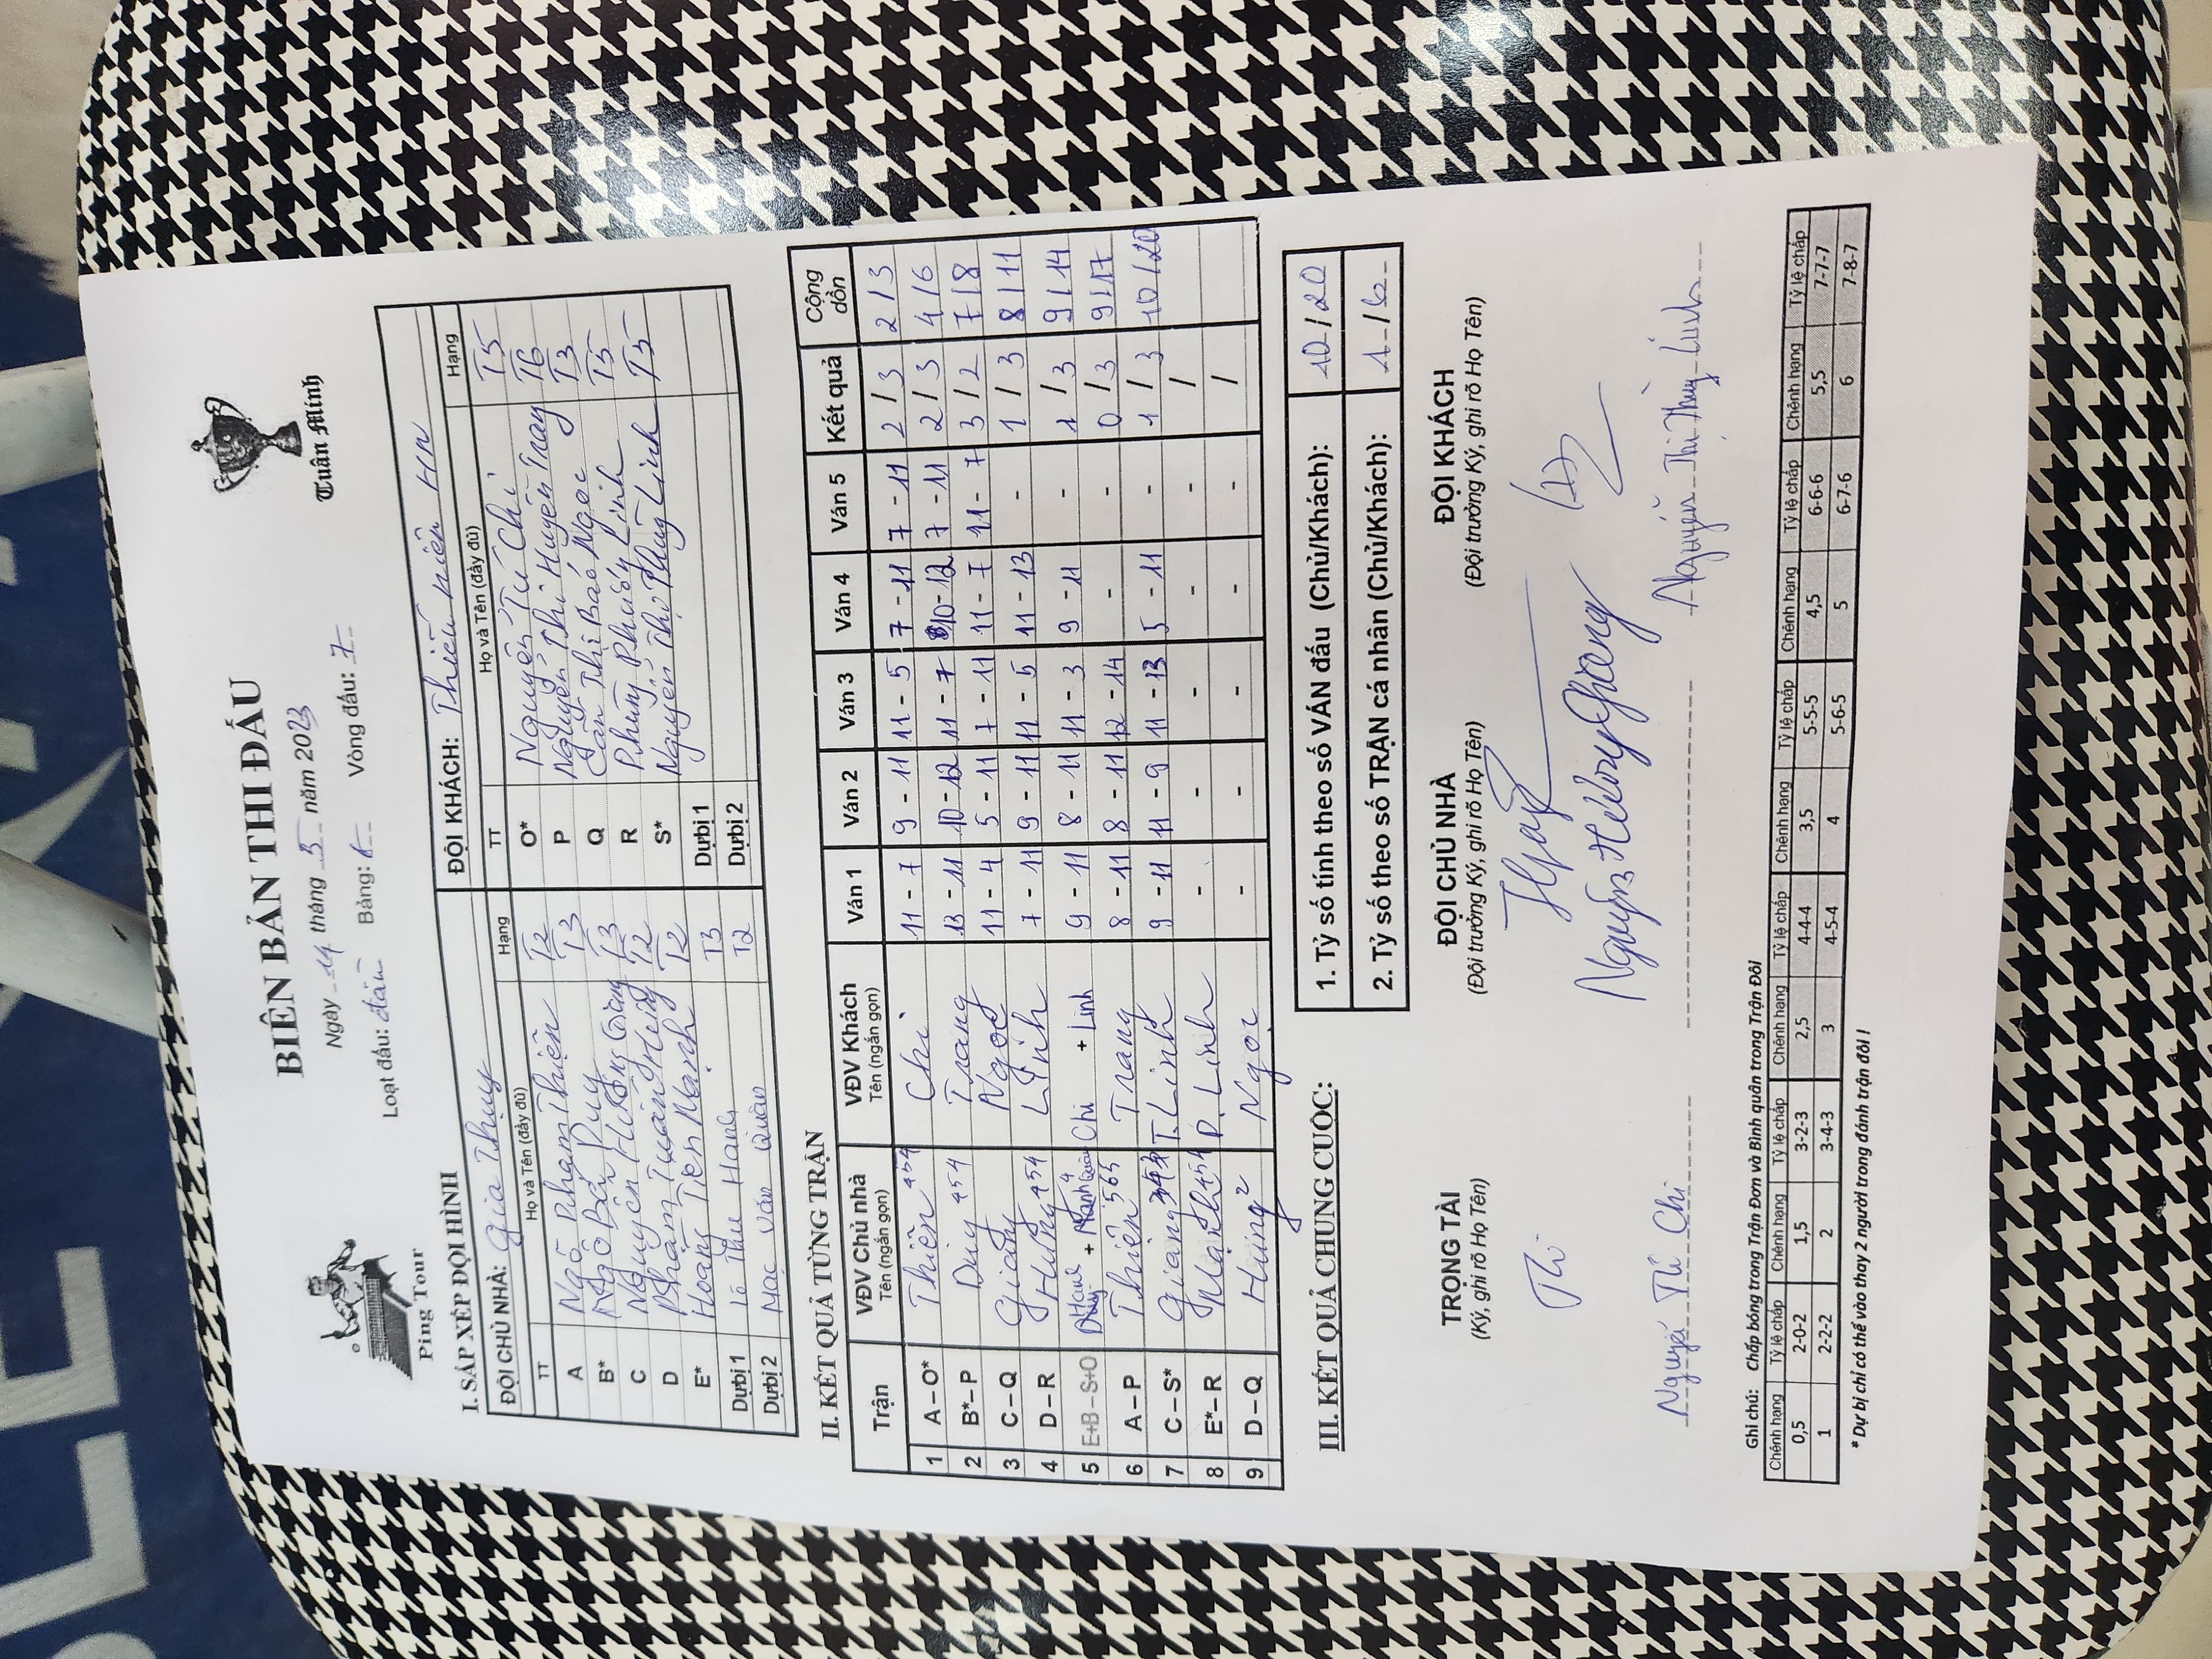 BIÊN BẢN THI ĐẤU
Ping Tour
Tuấn Minh
Ngày 14 tháng 5 năm 2023
Loạt đấu: Bảng: Vòng đấu: 7
I. SẮP XẾP ĐỘI HÌNH
ĐỘI CHỦ NHÀ: Gia Thụy ĐỘI KHÁCH: Thiếu niên HN
TT Họ và Tên (đầy đủ) Hạng TT Họ và Tên (đầy đủ) Hạng
A Ngô Phạm Thiện T2 O* Nguyễn Tú Chi T5
B* Ngô Bá Duy T3 P Nguyễn Thị Huyền Trang T6
C Nguyễn T3 Q Trần Thị Bảo Ngọc T3
D Phạm Tuấn Hưng T2 R Phùng Phương Linh T5
E* Hoàng Tiến Mạnh T2 S* Nguyễn Thị Thùy Linh T5
Dự bị 1 Lê Thu Hạnh T3 Dự bị 1
Dự bị 2 Mạc Văn Quân T2 Dự bị 2
II. KẾT QUẢ TỪNG TRẬN
Trận VĐV Chủ nhà Tên (ngắn gọn) VĐV Khách Tên (ngắn gọn) Ván 1 Ván 2 Ván 3 Ván 4 Ván 5 Kết quả Cộng dồn
1 A – O* Thiện 454 Chi 11 - 7 9 - 11 11 - 5 7 - 11 7 - 11 2 / 3 2 / 3
2 B* – P Duy 454 Trang 13 - 11 10 - 12 11 - 7 10 - 12 7 - 11 2 / 3 4 / 6
3 C – Q Giang Ngọc 11 - 4 5 - 11 7 - 11 11 - 7 11 - 7 3 / 2 7 / 8
4 D – R Hưng 454 Linh 7 - 11 9 - 11 11 - 5 11 - 13 - 1 / 3 8 / 11
5 E+B – S+O Hạnh + Quân Chi + Linh 9 - 11 8 - 11 11 - 3 9 - 11 - 1 / 3 9 / 14
6 A – P Thiện 565 Trang 8 - 11 8 - 11 12 - 14 - - 0 / 3 9 / 17
7 C – S* Giang T. Linh 9 - 11 11 - 9 11 - 13 5 - 11 - 1 / 3 10 / 20
8 E* – R Mạnh 454 P. Linh - - - - - /
9 D – Q Hưng 2 Ngọc - - - - - /
III. KẾT QUẢ CHUNG CUỘC:
1. Tỷ số tính theo số VÁN đấu (Chủ/Khách): 10 / 20
2. Tỷ số theo số TRẬN cá nhân (Chủ/Khách): 1 / 6
TRỌNG TÀI ĐỘI CHỦ NHÀ ĐỘI KHÁCH
(Ký, ghi rõ Họ Tên) (Đội trưởng Ký, ghi rõ Họ Tên) (Đội trưởng Ký, ghi rõ Họ Tên)
Nguyễn Chi Nguyễn Hương Giang Nguyễn Thị Thùy Linh
Ghi chú: Chấp bóng trong Trận Đơn và Bình quân trong Trận Đôi
Chênh hạng Tỷ lệ chấp Chênh hạng Tỷ lệ chấp Chênh hạng Tỷ lệ chấp Chênh hạng Tỷ lệ chấp Chênh hạng Tỷ lệ chấp Chênh hạng Tỷ lệ chấp
0,5 2-0-2 1,5 3-2-3 2,5 4-4-4 3,5 5-5-5 4,5 6-6-6 5,5 7-7-7
1 2-2-2 2 3-4-3 3 4-5-4 4 5-6-5 5 6-7-6 6 7-8-7
* Dự bị chỉ có thể vào thay 2 người trong đánh trận đôi !